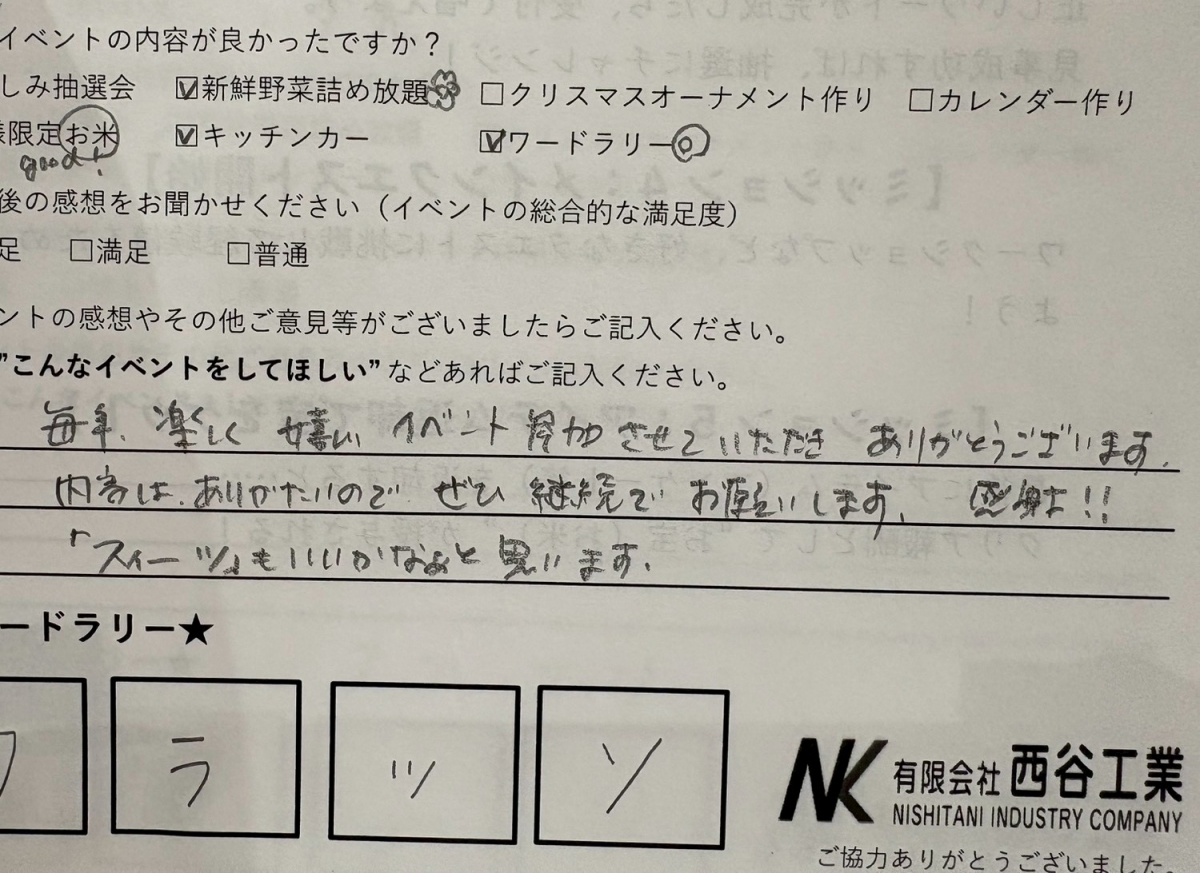 イベントの内容が良かったですか？
しみ抽選会 ☑新鮮野菜詰め放題 □クリスマスオーナメント作り □カレンダー作り
様限定お米 ☑キッチンカー ☑ワードラリー
good!
後の感想をお聞かせください（イベントの総合的な満足度）
足 □満足 □普通
ントの感想やその他ご意見等がございましたらご記入ください。
"こんなイベントをしてほしい"などあればご記入ください。
毎年、楽しく 嬉しい イベント 参加 させて いただき ありがとうございます。
内容は、ありがたいので ぜひ 継続で お願いします。 感謝!!
「スイーツ」もいいかなぁと 思います。
ードラリー★
ラ ッ ソ
NK 有限会社 西谷工業
NISHITANI INDUSTRY COMPANY
ご協力ありがとうございました。